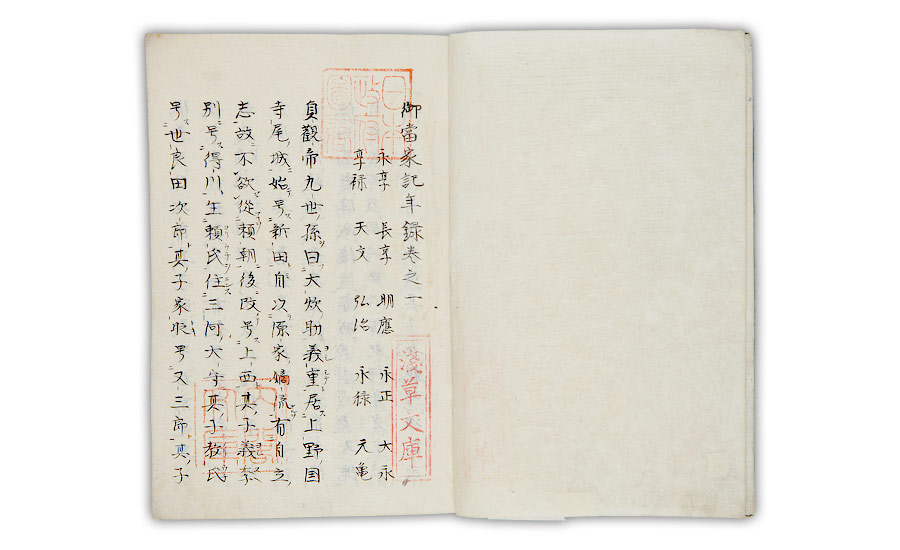 御當家記年錄卷之一
永享 長享 明應 永正 大永
享禄 天文 弘治 永禄 元亀
貞觀帝九世孫曰大炊助義重居上野国
寺尾城始号新田自以源家嫡流有自立
志故不欲從頼朝後改号上西其子義季
別号得川生頼氏住三河大守其子教氏
号世良田次郎其子家号又三郎其子
日本政府圖書
淺草文庫
内閣文庫